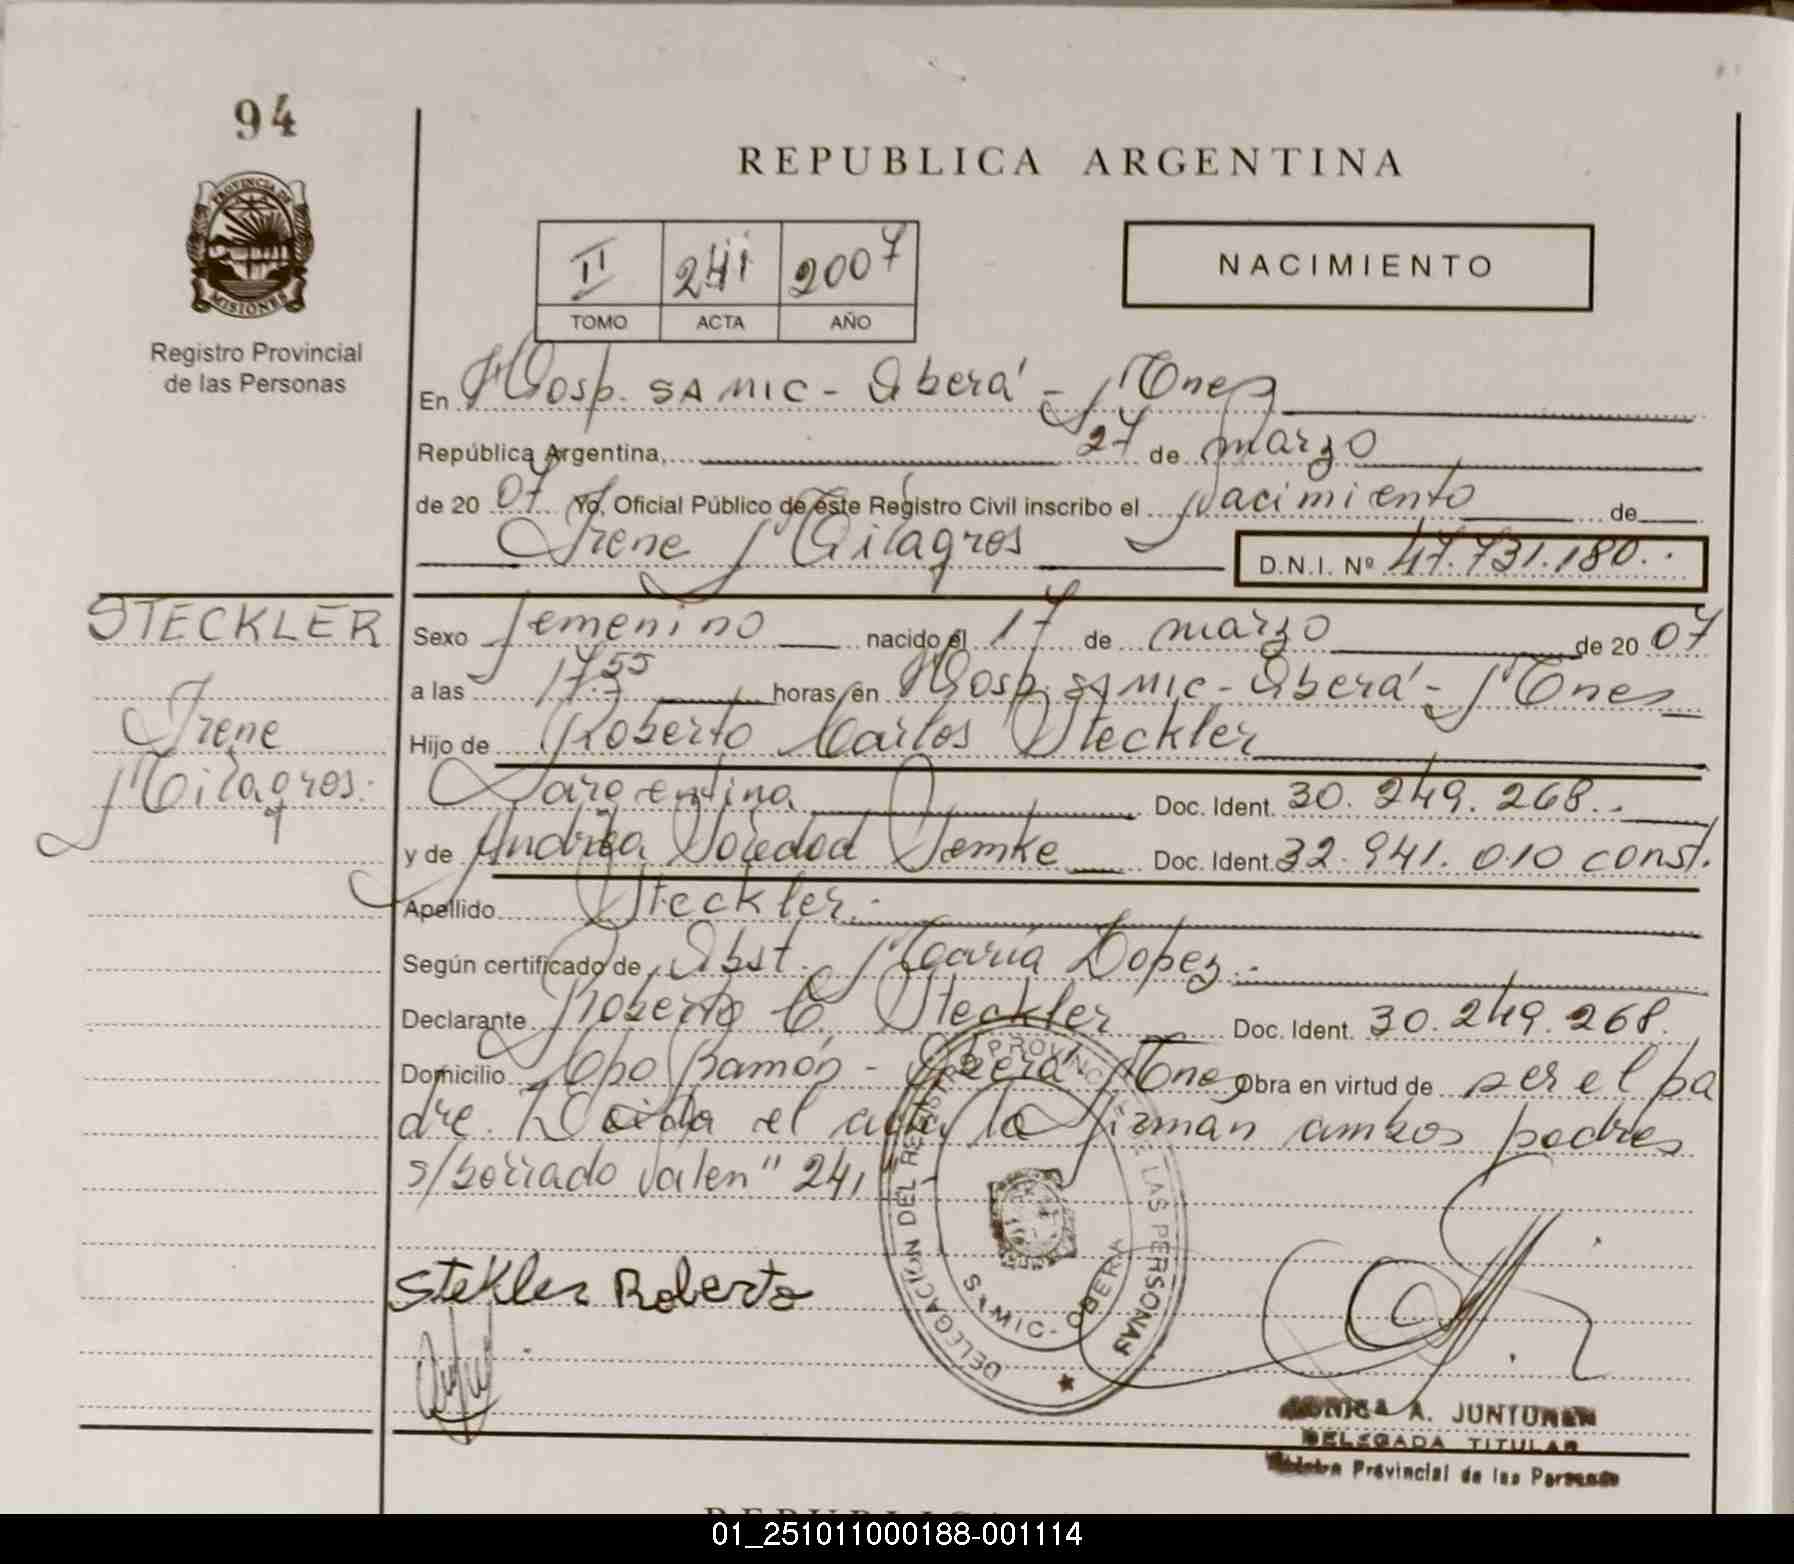 94
REPUBLICA ARGENTINA
PROVINCIA DE MISIONES
Registro Provincial
de las Personas
II 241 2007
TOMO ACTA AÑO
NACIMIENTO
En Hosp. SAMIC - Oberá - Mnes
República Argentina, 27 de marzo
de 20 07 Yo, Oficial Público de este Registro Civil inscribo el Nacimiento de
Irene Milagros D.N.I. Nº 47.731.180.
STECKLER
Irene
Milagros.
Sexo femenino nacido el 17 de marzo de 20 07
a las 17.55 horas en Hosp. SAMIC - Oberá - Mnes
Hijo de Roberto Carlos Steckler
argentina Doc. Ident. 30.249.268.
y de Andréa Soledad Temke Doc. Ident. 32.941.010 const.
Apellido Steckler.
Según certificado de Obst. María Lopez.
Declarante Roberto C. Steckler Doc. Ident. 30.249.268.
Domicilio Cpo Ramón - Oberá Mnes Obra en virtud de ser el pa
dre. Leida el acta la firman ambos padres
s/borrado valen" 241
DELEGACION DEL REGISTRO PROVINCIAL DE LAS PERSONAS
SAMIC - OBERA
Stekler Roberto
MONICA A. JUNTUNEN
DELEGADA TITULAR
Provincial de las Personas
01_251011000188-001114